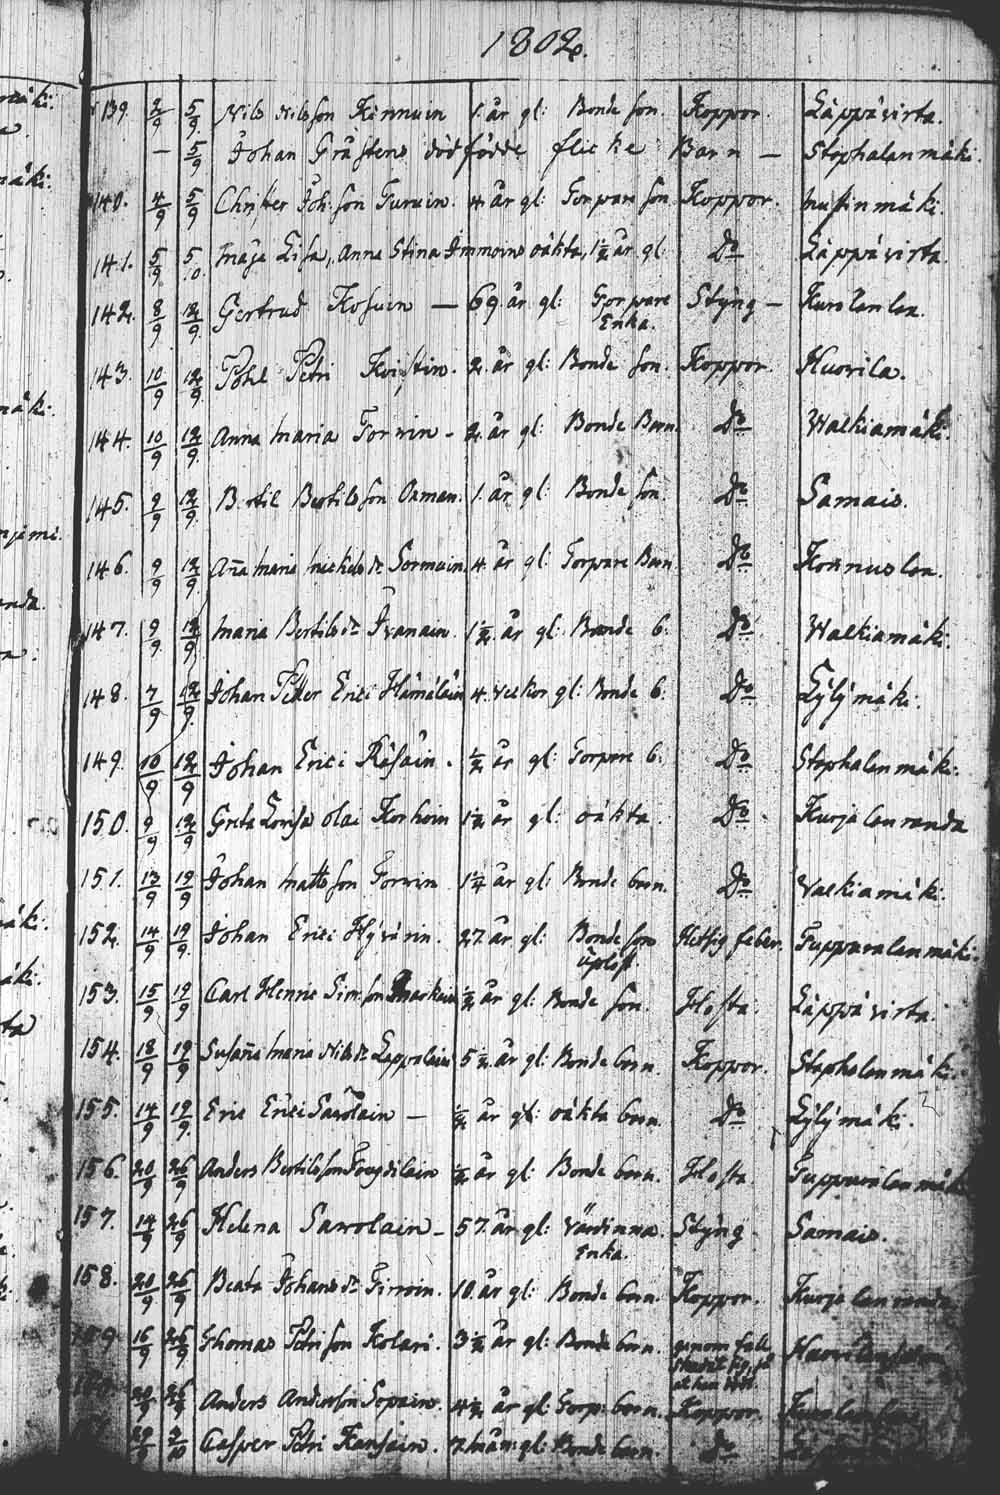 1802.
139. 2/9 5/9 Nils Nilsson Kinnuin 1. år gl: Bonde son. Koppor. Läppävirta.
— 5/9 Johan Gråstens dödfödde flicke Barn — Stophalanmäki.
140. 4/9 5/9 Christer Joh:son Turuin. 4. år gl: Torpare son Koppor. Mustinmäki.
141. 5/9 Maja Lisa, Anna Stina Immoins oäkta, 1½ år gl. Do Läppävirta.
142. 8/9 12/9 Gertrud Kosuin — 69 år gl: Torpare Enka. Styng — Kurolanlax.
143. 10/9 12/9 Påhl Petri Koistin. 2. år gl: Bonde son. Koppor. Huorila.
144. 10/9 12/9 Anna Maria Torvin - 2. år gl: Bonde Barn. Do Walkiamäki.
145. 9/9 12/9 Bertil Bertilsson Oxman. 1. år gl: Bonde son. Do Samais.
146. 9/9 12/9 Aña Maria Mickelsdr Sormuin. 4. år gl: Torpare Barn Do Konnuslax.
147. 9/9 12/9 Maria Bertilsdr Ivanain. 1½ år gl: Bonde b. Do Walkiamäki.
148. 7/9 12/9 Johan Petter Erici Hämäläin 4. veckor gl: Bonde b. Do Lylymäki.
149. 10/9 12/9 Johan Erici Räsäin. ½ år gl: Torpare b. Do Stophalanmäki.
150. 9/9 12/9 Greta Lovisa Olai Korhoin 1½ år gl: oäkta. Do Kurjalanranda
151. 13/9 19/9 Johan Mattsson Torvin. 1¼ år gl: Bonde barn. Do Valkiamäki.
152. 14/9 19/9 Johan Erici Hyvärin. 27. år gl: Bonde son Hetsig feber. Tuppuralanmäki.
153. 15/9 19/9 Carl Henric Sim:son Markain ½ år gl: Bonde son. Hosta. Läppävirta.
154. 18/9 19/9 Susaña Maria Nilsdr Lappalain 5½ år gl: Bonde barn. Koppor. Stophalanmäki.
155. 14/9 19/9 Eric Erici Savolain — ½ år gl: oäkta barn. Do Lylymäki.
156. 20/9 26/9 Anders Bertilsson ½ år gl: Bonde barn. Hosta. Tuppuralanmäki
157. 14/9 26/9 Helena Savolain - 57. år gl: Värdinna Enka. Styng. Samais.
158. 20/9 26/9 Beata Johansdr Tirroin. 10. år gl: Bonde barn. Koppor. Kurjalanranda
159 16/9 26/9 Thomas Petri son Kolari. 3½ år gl: Bonde barn. genom fall
20/9 26/9 Anders Andersson Sopain. 4½ år gl: Torp: barn. Koppor.
Casper Petri Kansain. 7. mån: gl: Bonde barn. Do